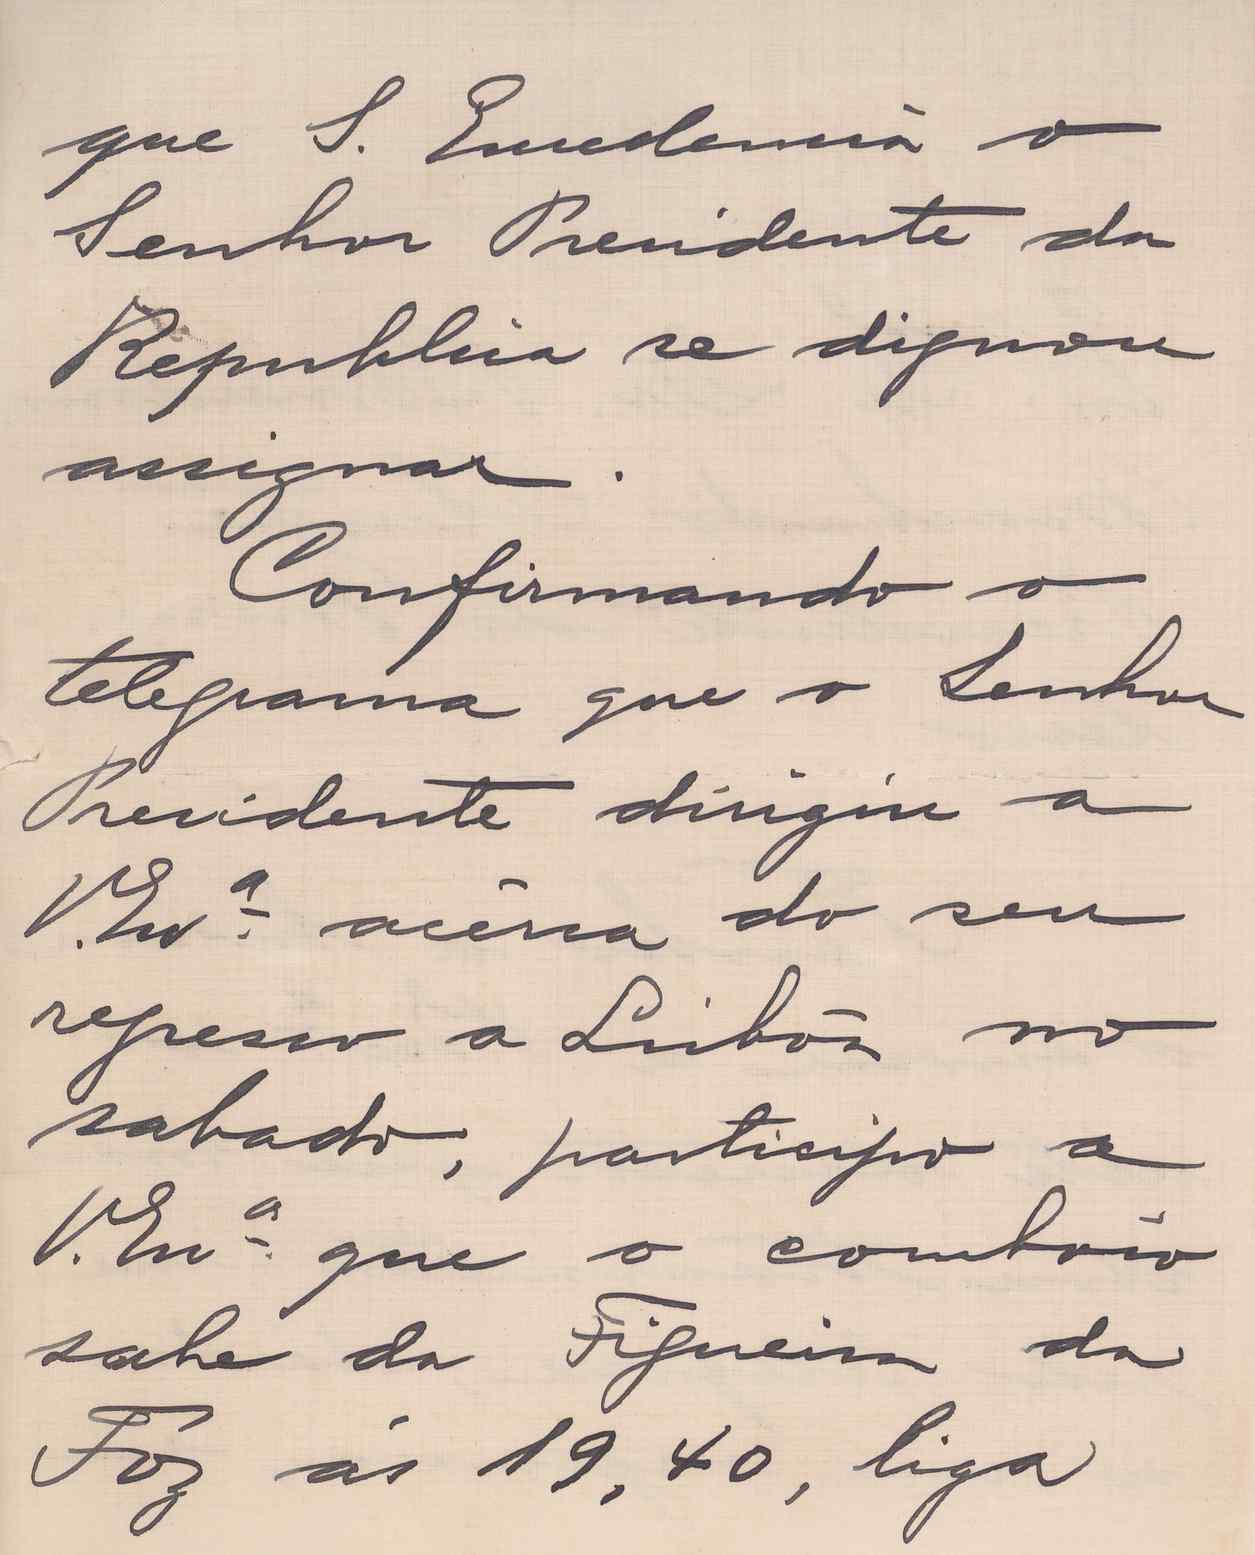 que S. Excelencia o
Senhor Presidente da
Republica se dignou
assignar.
Confirmando o
telegrama que o Senhor
Presidente dirigiu a
V. Exª acêrca do seu
regresso a Lisbôa no
sabado, participo a
V. Exª que o combóio
sahe da Figueira da
Foz ás 19,40, liga